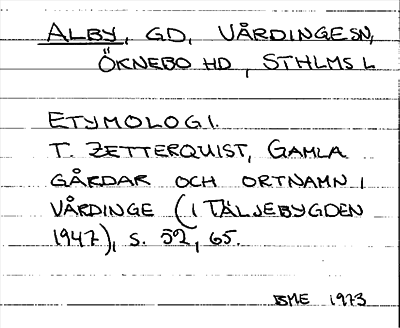 ALBY, GD, VÅRDINGE SN,
ÖKNEBO HD, STHLMS L
ETYMOLOGI.
T. ZETTERQUIST, GAMLA
GÅRDAR OCH ORTNAMN I
VÅRDINGE (I TÄLJEBYGDEN
1947), S. 52, 65.
BME 1973